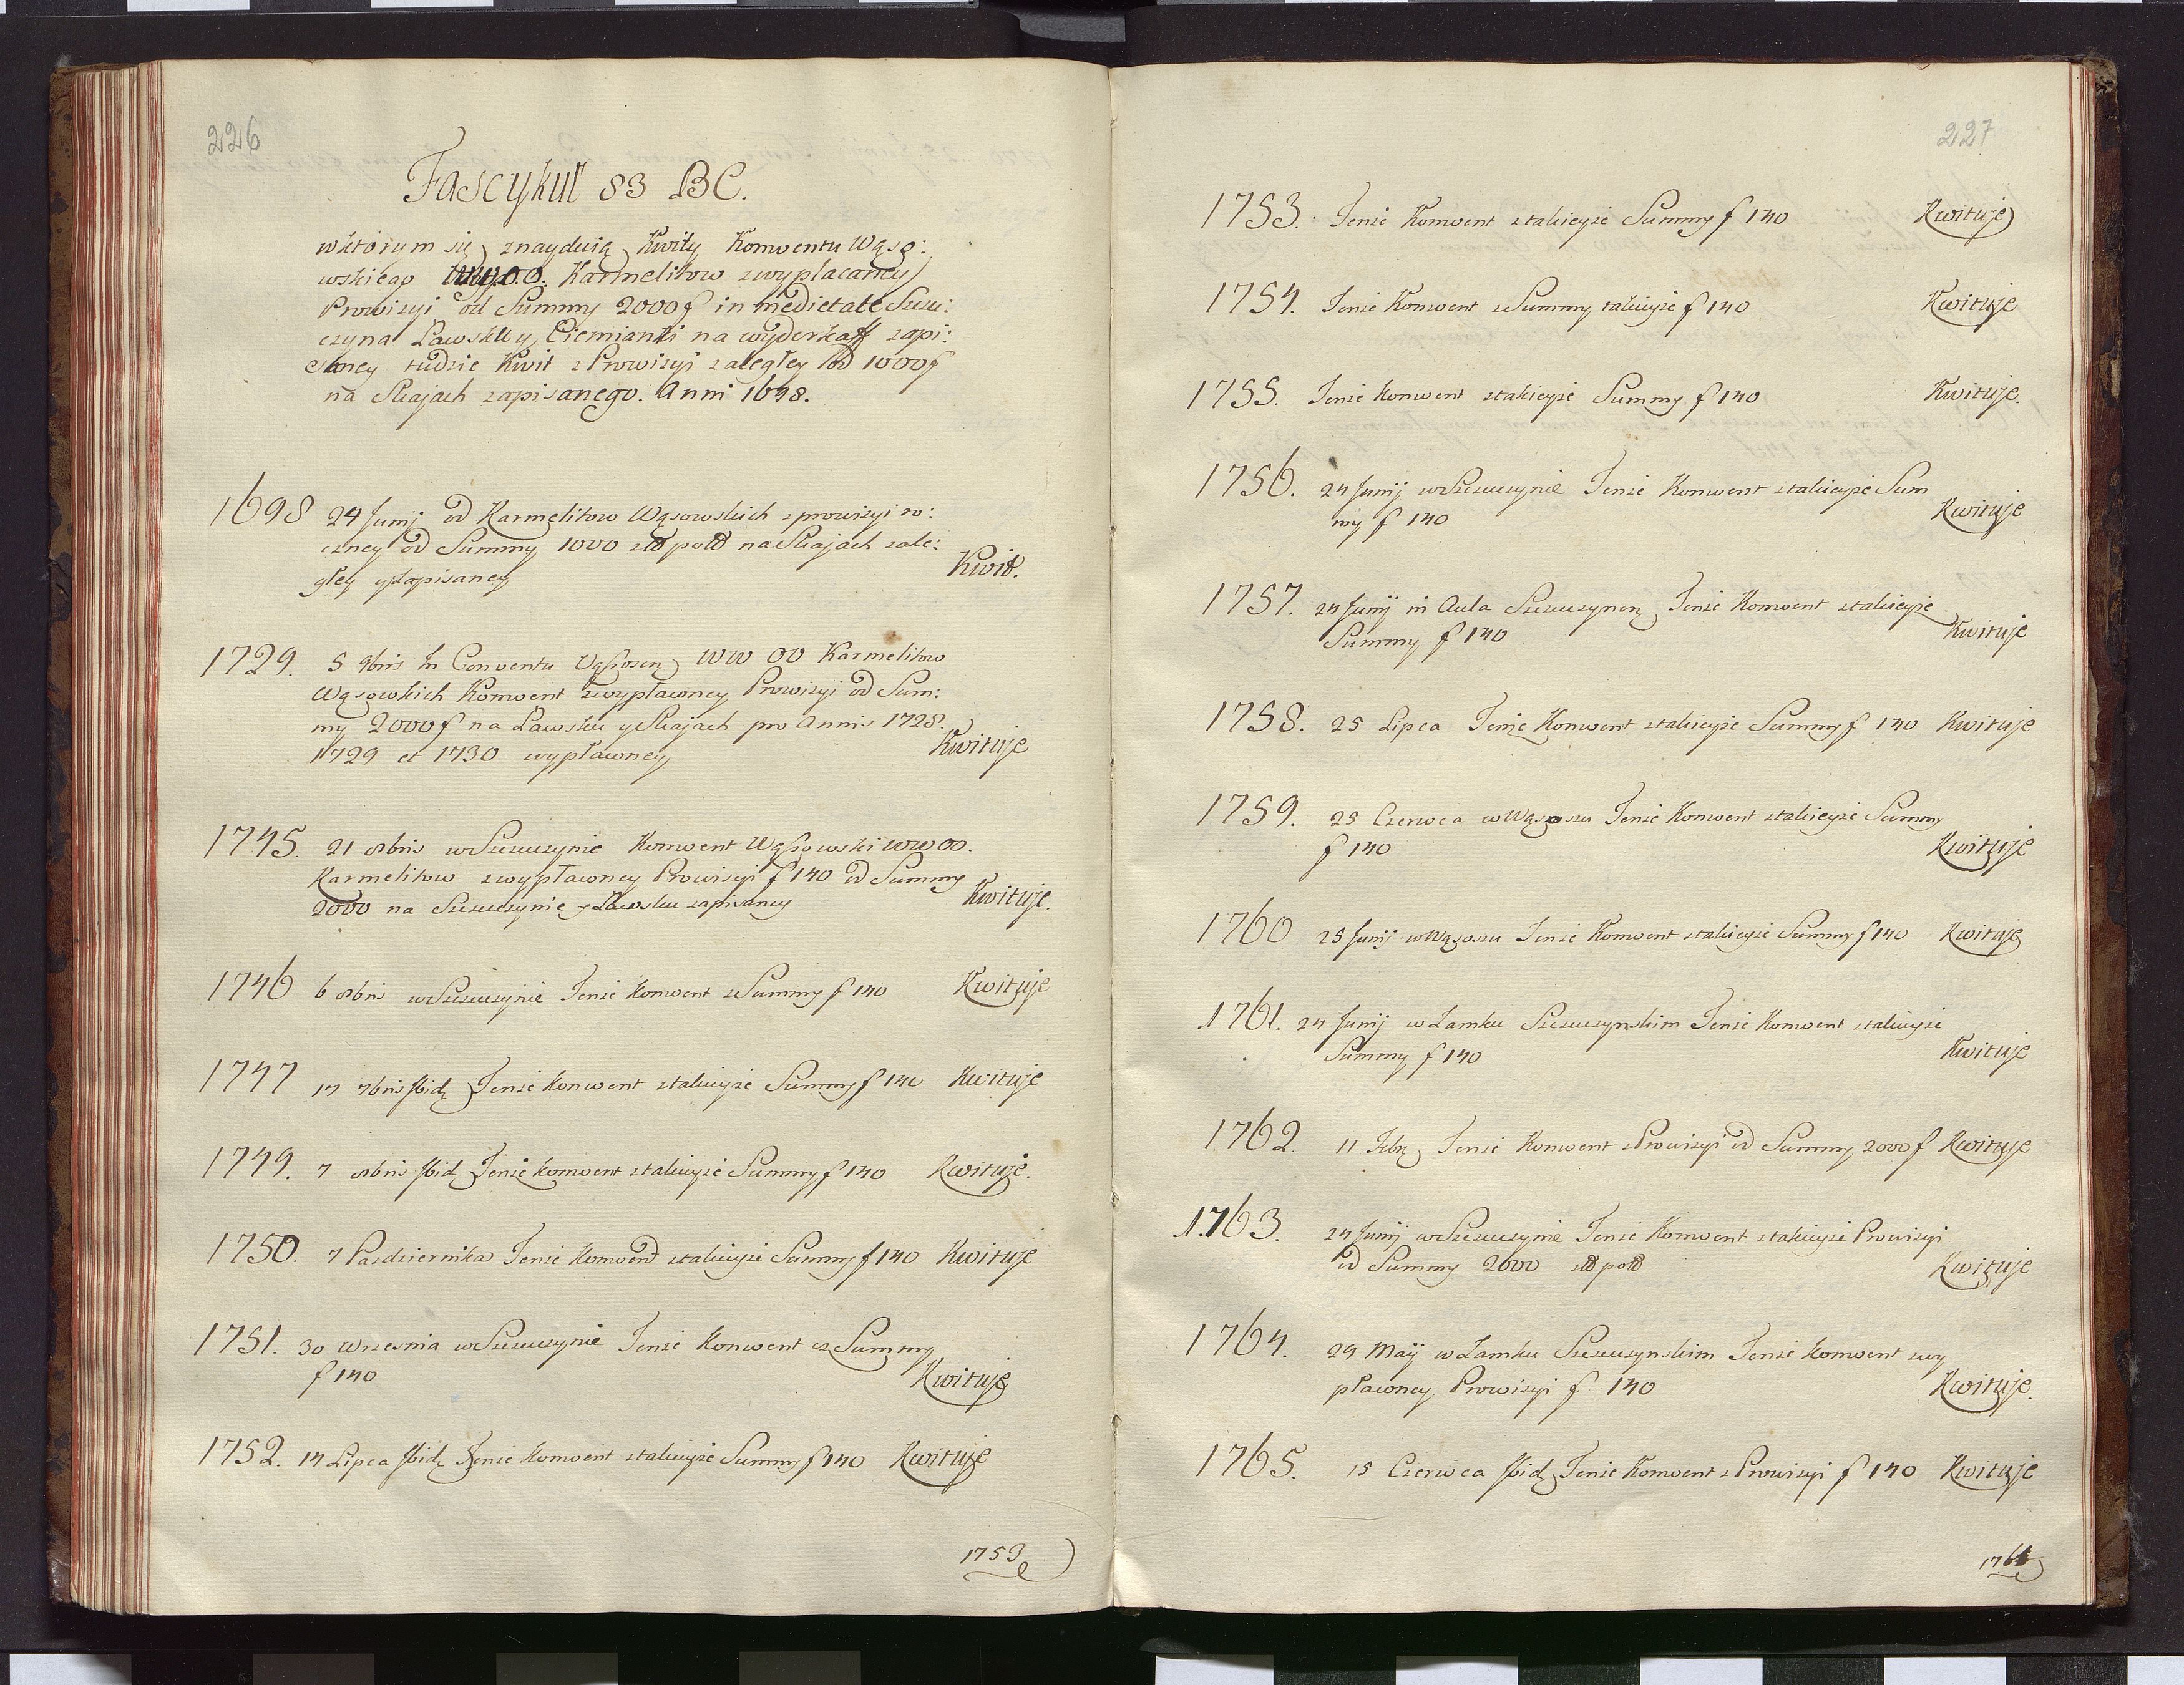 226
Fascykuł 83 BC.
w którym się znayduią Kwity Konwentu Wąso:
wskiego WW.OO. Karmelitow z wypłacaney
Prowizyi od Summy 2000 f in medietate Szczu:
czyna Ławsk y Ciemianki na wyderkaff zapi:
saney tudzie Kwit z Prowizyi zaległey od 1000 f
na Skajach zapisanego. Anni 1698.
1698 24 Junij od Karmelitow Wąsowskich z prowizyi ro:
czney od Summy 1000 złł poll na Skajach zale:
głey y zapisaney Kwit.
1729. 5 9bris In Conventu Vąsosen WW OO Karmelitow
Wąsowkich Konwent z wypłaconey Prowizyi od Sum:
my 2000 f na Ławsku y Skajach pro Annis 1728.
1729 et 1730 wypłaconey Kwituje
1745. 21 8bris w Szczuczynie Konwent Wąsowski WW OO.
Karmelitow z wypłaconey Prowizyi f 140 od Summy
2000 na Szczuczynie y Ławsku zapisaney Kwituje.
1746 6 8bris w Szczuczynie Tenże Konwent z Summy f 140 Kwituje
1747 17 7bris Ibid Tenże Konwent z takieyże Summy f 140 Kwituje
1749. 7 8bris Ibid Tenże Konwent z takieyże Summy f 140 Kwituje.
1750. 7 Pazdziernika Tenże Konwent z takieyże Summy f 140 Kwituje
1751. 30 Wrzesnia w Szczuczynie Tenże Konwent z Summy
f 140 Kwituje
1752. 14 Lipca Ibid Tenże Konwent z takieyże Summy f 140 Kwituje
1753
227
1753. Tenże Konwent z takieyże Summy f 140 Kwituje
1754. Tenże Konwent z Summy takieyże f 140 Kwituje
1755. Tenże Konwent z takieyże Summy f 140 Kwituje.
1756. 24 Junij w Szczuczynie Tenże Konwent z takieyże Sum
my f 140 Kwituje
1757. 24 Junij in Aula Szczuczynen Tenże Konwent z takieyże
Summy f 140 Kwituje
1758. 25 Lipca Tenże Konwent z takieyże Summy f 140 Kwituje
1759. 25 Czerwca w Wąsoszu Tenże Konwent z takieyże Summy
f 140 Kwituje
1760 25 Junij w Wąsoszu Tenże Konwent z takieyże Summy f 140 Kwituje
1761. 24 Junij w Zamku Szczuczynskim Tenże Konwent z takieyże
Summy f 140 Kwituje
1762. 11 Tenże Konwent z Prowizyi od Summy 2000 f Kwituje
1763. 24 Junij w Szczuczynie Tenże Konwent z takieyże Prowizyi
od Summy 2000 złł poll Kwituje
1764. 29 Maij w Zamku Szczuczynskim Tenże Konwent z wy
płaconey Prowizyi f 140 Kwituje.
1765. 15 Czerwca Ibid Tenże Konwent z Prowizyi f 140 Kwituje
1766